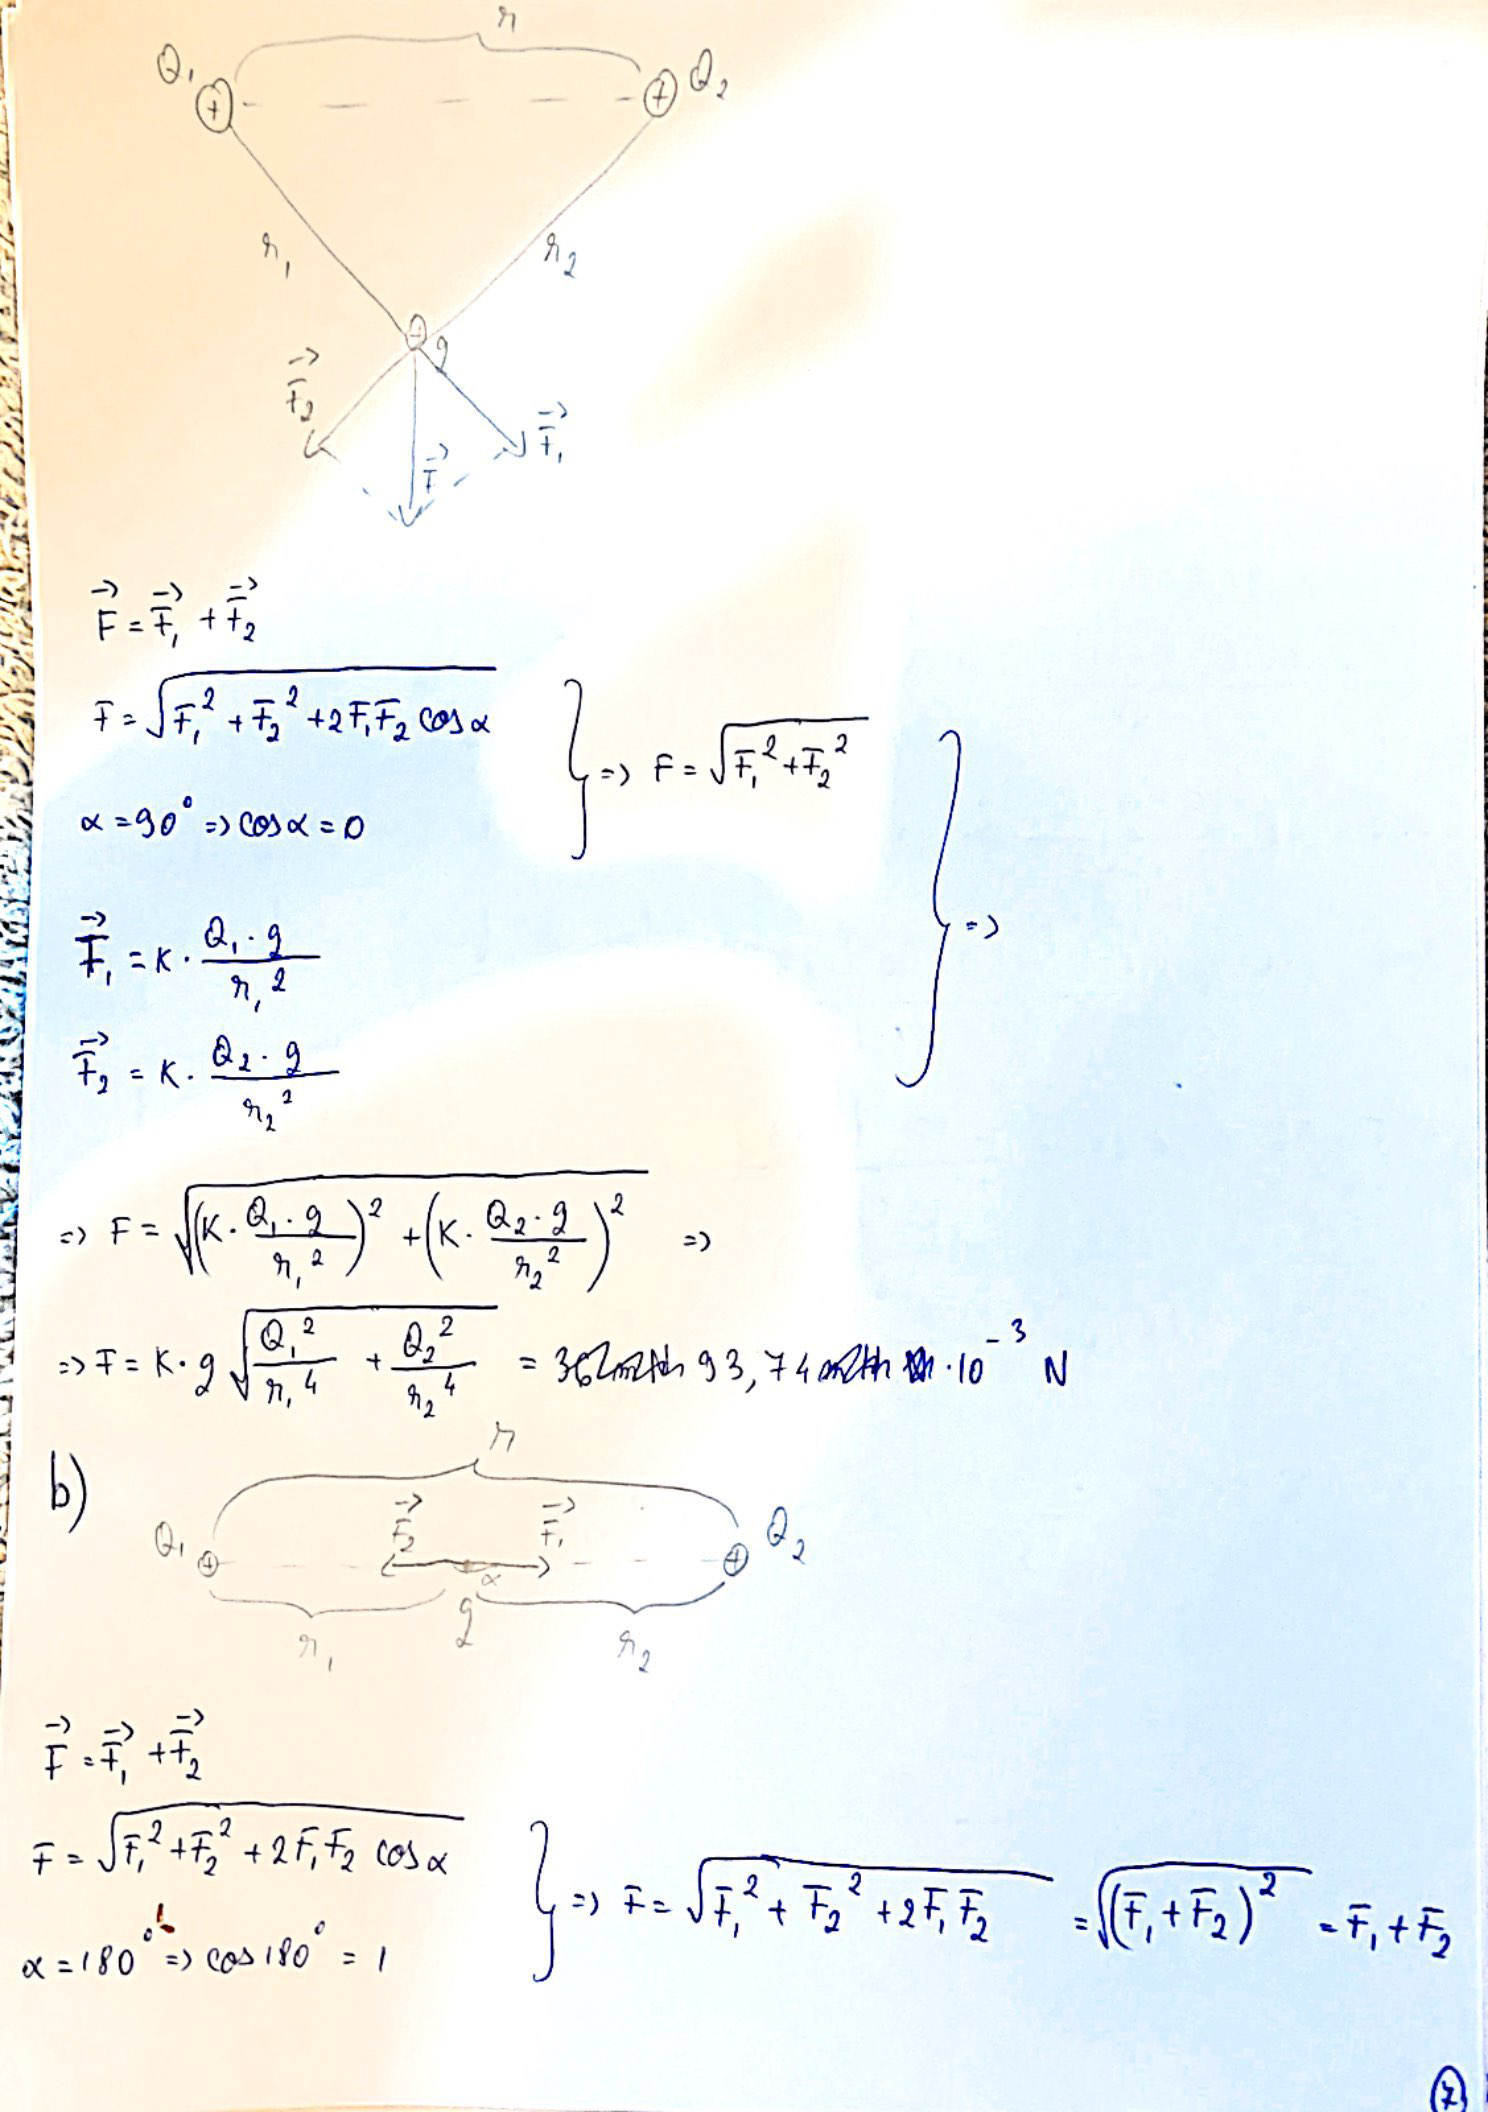 r
Q₁ + + Q₂
r₁ r₂
+ q
F⃗₂ F⃗ F⃗₁
F⃗ = F⃗₁ + F⃗₂
F = √(F₁² + F₂² + 2F₁F₂ cos α)
=> F = √(F₁² + F₂²)
α = 90° => cos α = 0
F⃗₁ = K · Q₁ · q / r₁²
=>
F⃗₂ = K · Q₂ · q / r₂²
=> F = √((K · Q₁ · q / r₁²)² + (K · Q₂ · q / r₂²)²) =>
=> F = K · q √(Q₁² / r₁⁴ + Q₂² / r₂⁴) = 93,74 · 10⁻³ N
b)
r
Q₁ + F⃗₂ F⃗₁ + Q₂
α
r₁ q r₂
F⃗ = F⃗₁ + F⃗₂
F = √(F₁² + F₂² + 2F₁F₂ cos α)
=> F = √(F₁² + F₂² + 2F₁F₂) = √((F₁ + F₂)²) = F₁ + F₂
α = 180° => cos 180° = 1
7